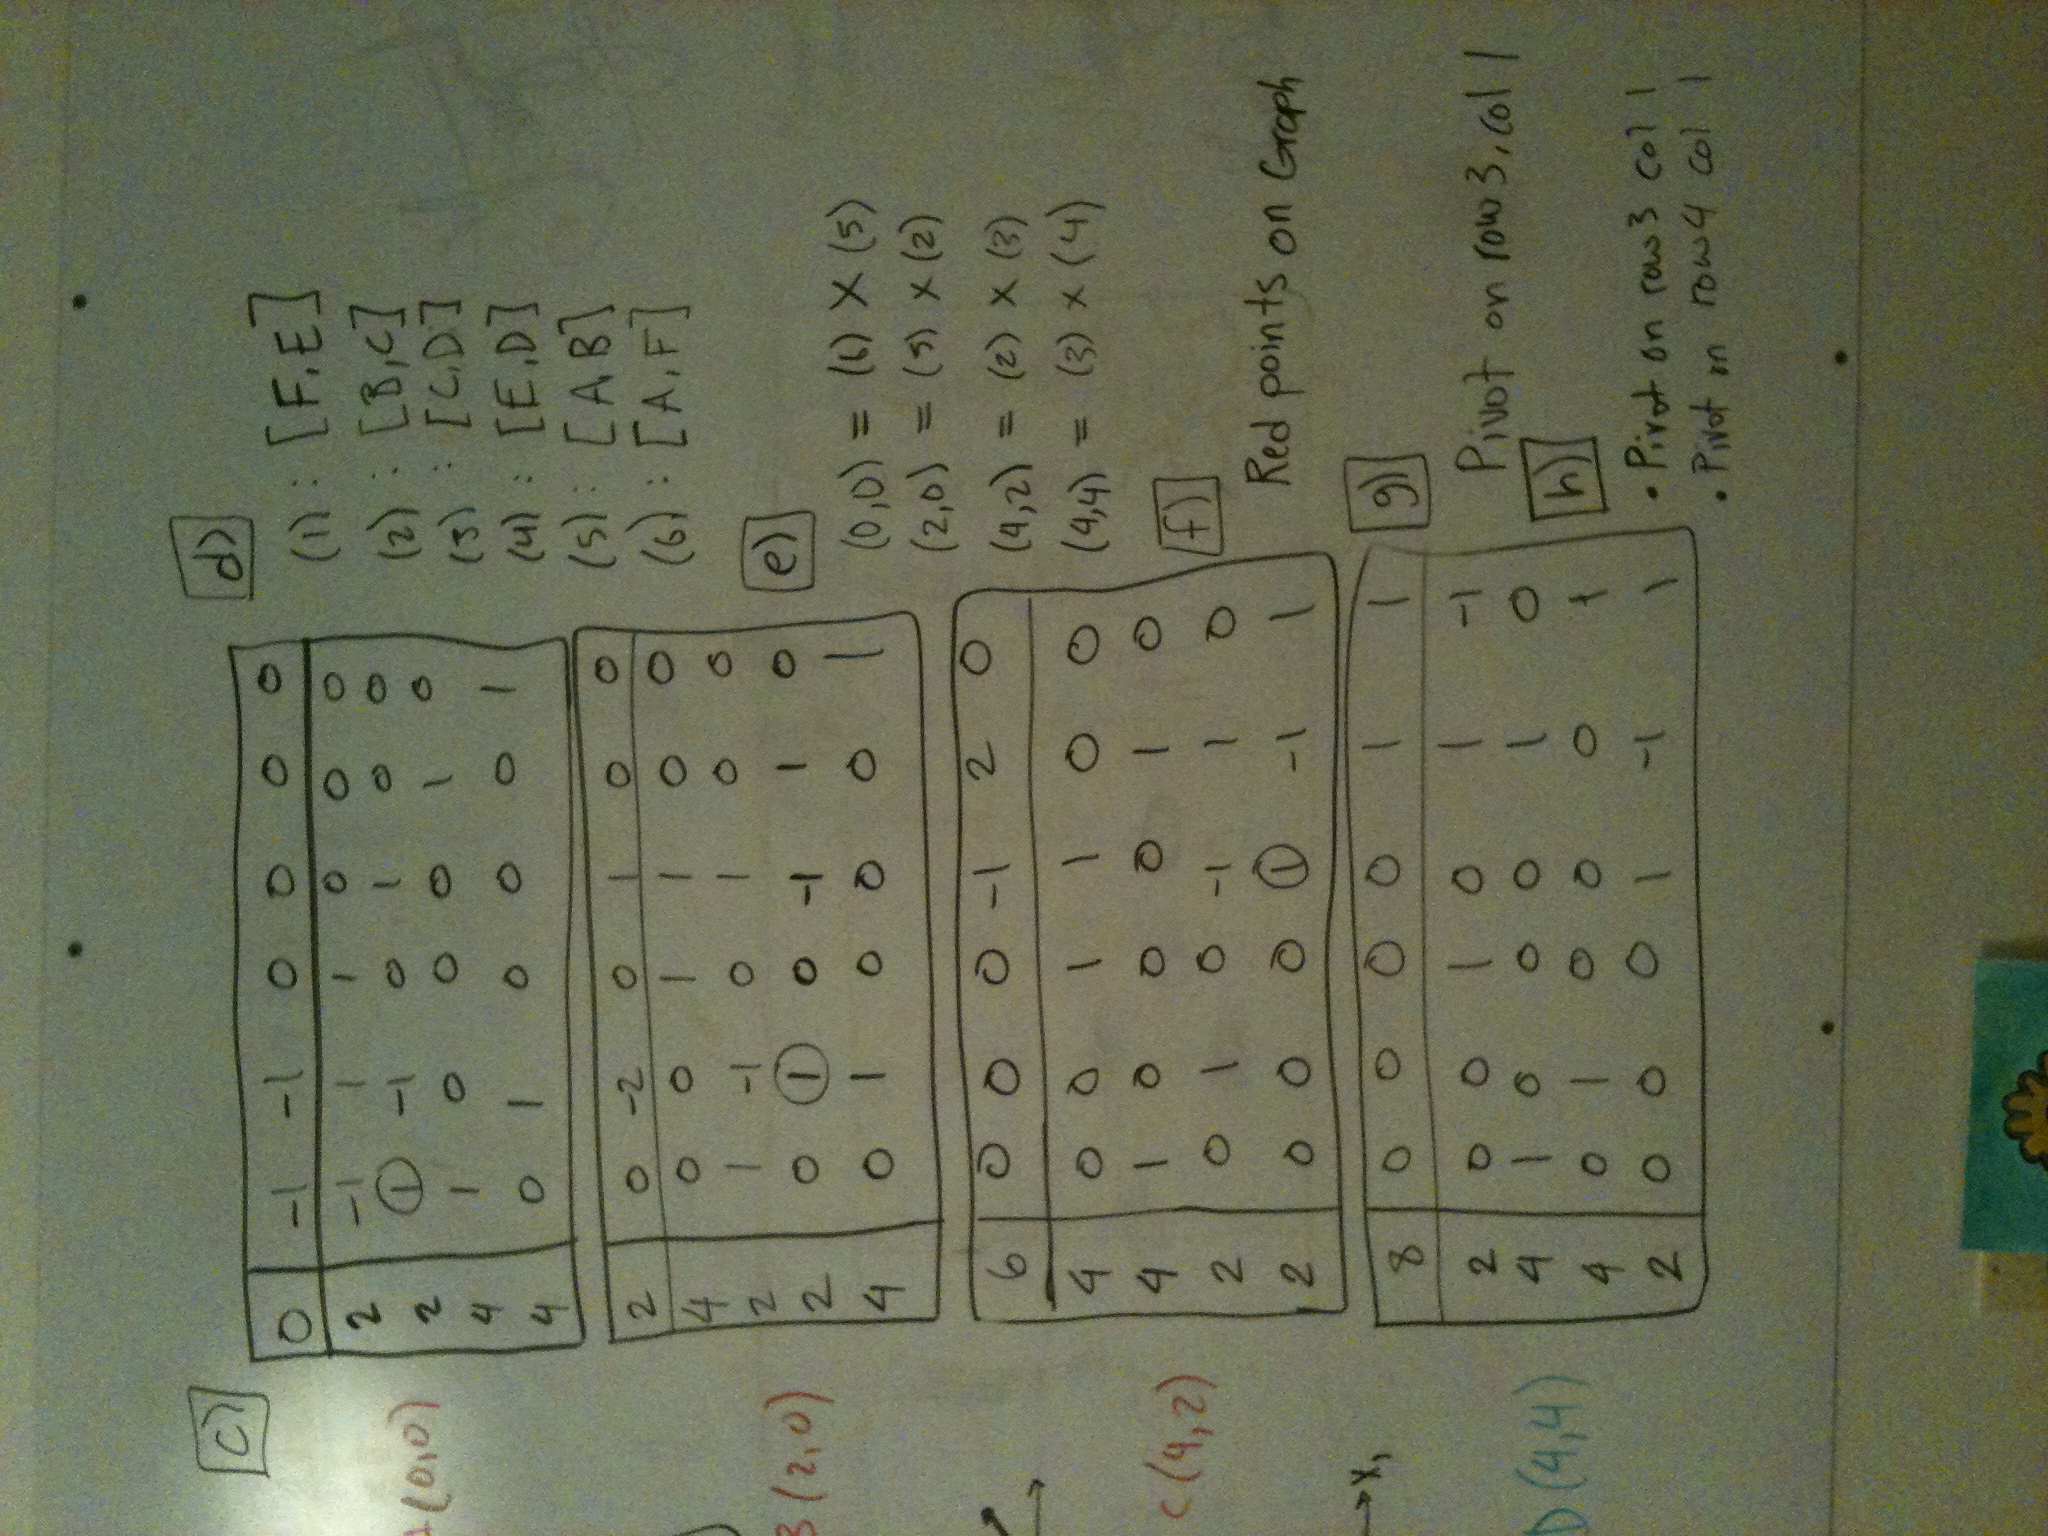 c)
0 -1 -1 0 0 0 0
2 -1 1 1 0 0 0
2 1 -1 0 1 0 0
4 1 0 0 0 1 0
4 0 1 0 0 0 1
(0,0)
2 0 -2 0 1 0 0
4 0 0 1 1 0 0
2 1 -1 0 1 0 0
2 0 1 0 -1 1 0
4 0 1 0 0 0 1
B (2,0)
6 0 0 0 -1 2 0
4 0 0 1 1 0 0
4 1 0 0 0 1 0
2 0 1 0 -1 1 0
2 0 0 0 1 -1 1
C (4,2)
x,
8 0 0 0 0 1 1
2 0 0 1 0 1 -1
4 1 0 0 0 1 0
4 0 1 0 0 0 1
2 0 0 0 1 -1 1
D (4,4)
d)
(1) : [F,E]
(2) : [B,C]
(3) : [C,D]
(4) : [E,D]
(5) : [A,B]
(6) : [A,F]
e)
(0,0) = (6) X (5)
(2,0) = (5) X (2)
(4,2) = (2) X (3)
(4,4) = (3) X (4)
f)
Red points on Graph
g)
Pivot on row 3, col 1
h)
• Pivot on row 3 col 1
• Pivot on row 4 col 1